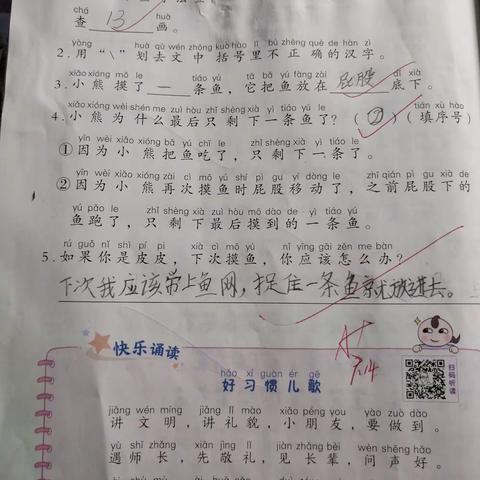 chá huà
查 13 画。
yòng huà qù wén zhōng kuò hào lǐ bú zhèng què de hàn zì
2.用“\”划去文中括号里不正确的汉字。
xiǎo xióng mō le tiáo yú tā bǎ yú fàng zài dǐ xià
3.小熊摸了 一 条鱼，它把鱼放在 屁股 底下。
xiǎo xióng wèi shén me zuì hòu zhǐ shèng xià yì tiáo yú le tián xù hào
4.小熊为什么最后只剩下一条鱼了？（②）（填序号）
yīn wèi xiǎo xióng bǎ yú chī le zhǐ shèng xià yì tiáo le
①因为小熊把鱼吃了，只剩下一条了。
yīn wèi xiǎo xióng zài cì mō yú shí pì gu yí dòng le zhī qián pì gu xià de
②因为小熊再次摸鱼时屁股移动了，之前屁股下的
yú pǎo le zhǐ shèng xià zuì hòu mō dào de yì tiáo yú
鱼跑了，只剩下最后摸到的一条鱼。
rú guǒ nǐ shì pí pi xià cì mō yú nǐ yīng gāi zěn me bàn
5.如果你是皮皮，下次摸鱼，你应该怎么办？
下次我应该带上鱼网，捉住一条鱼就放进去。
快乐诵读
扫码听读
hǎo xí guàn ér gē
好习惯儿歌
jiǎng wén míng jiǎng lǐ mào xiǎo péng you yào zuò dào
讲文明，讲礼貌，小朋友，要做到。
yù shī zhǎng xiān jìng lǐ jiàn zhǎng bèi wèn shēng hǎo
遇师长，先敬礼，见长辈，问声好。